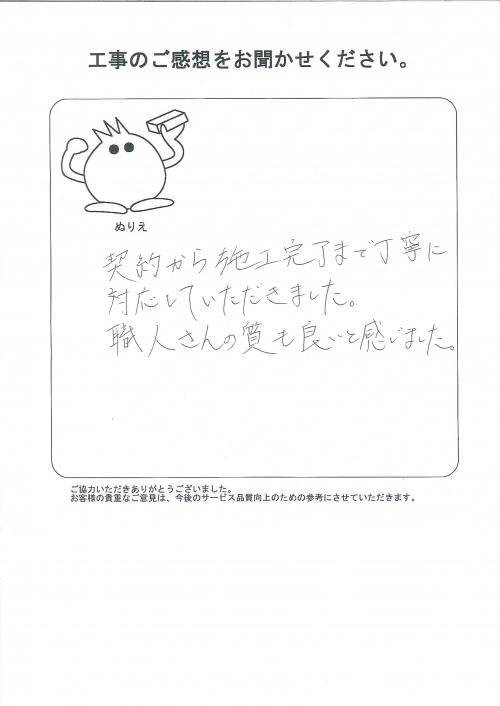 工事のご感想をお聞かせください。
ぬりえ
契約から施工完了まで丁寧に
対応していただきました。
職人さんの質も良いと感じました。
ご協力いただきありがとうございました。
お客様の貴重なご意見は、今後のサービス品質向上のための参考にさせていただきます。